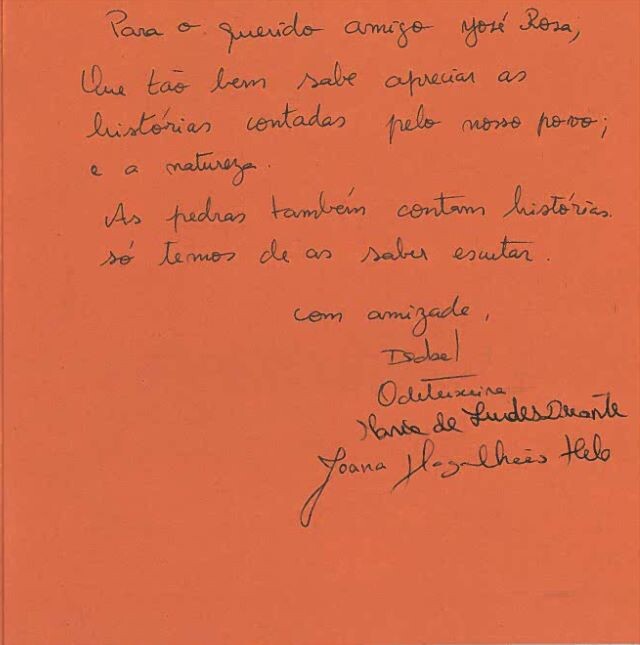 Para o querido amigo José Rosa,
Que tão bem sabe apreciar as
histórias contadas pelo nosso povo;
e a natureza.
As pedras também contam histórias.
só temos de as saber escutar.
com amizade,
Isabel
Odeteixeira
Maria de Lurdes Duarte
Joana Magalhães Melo